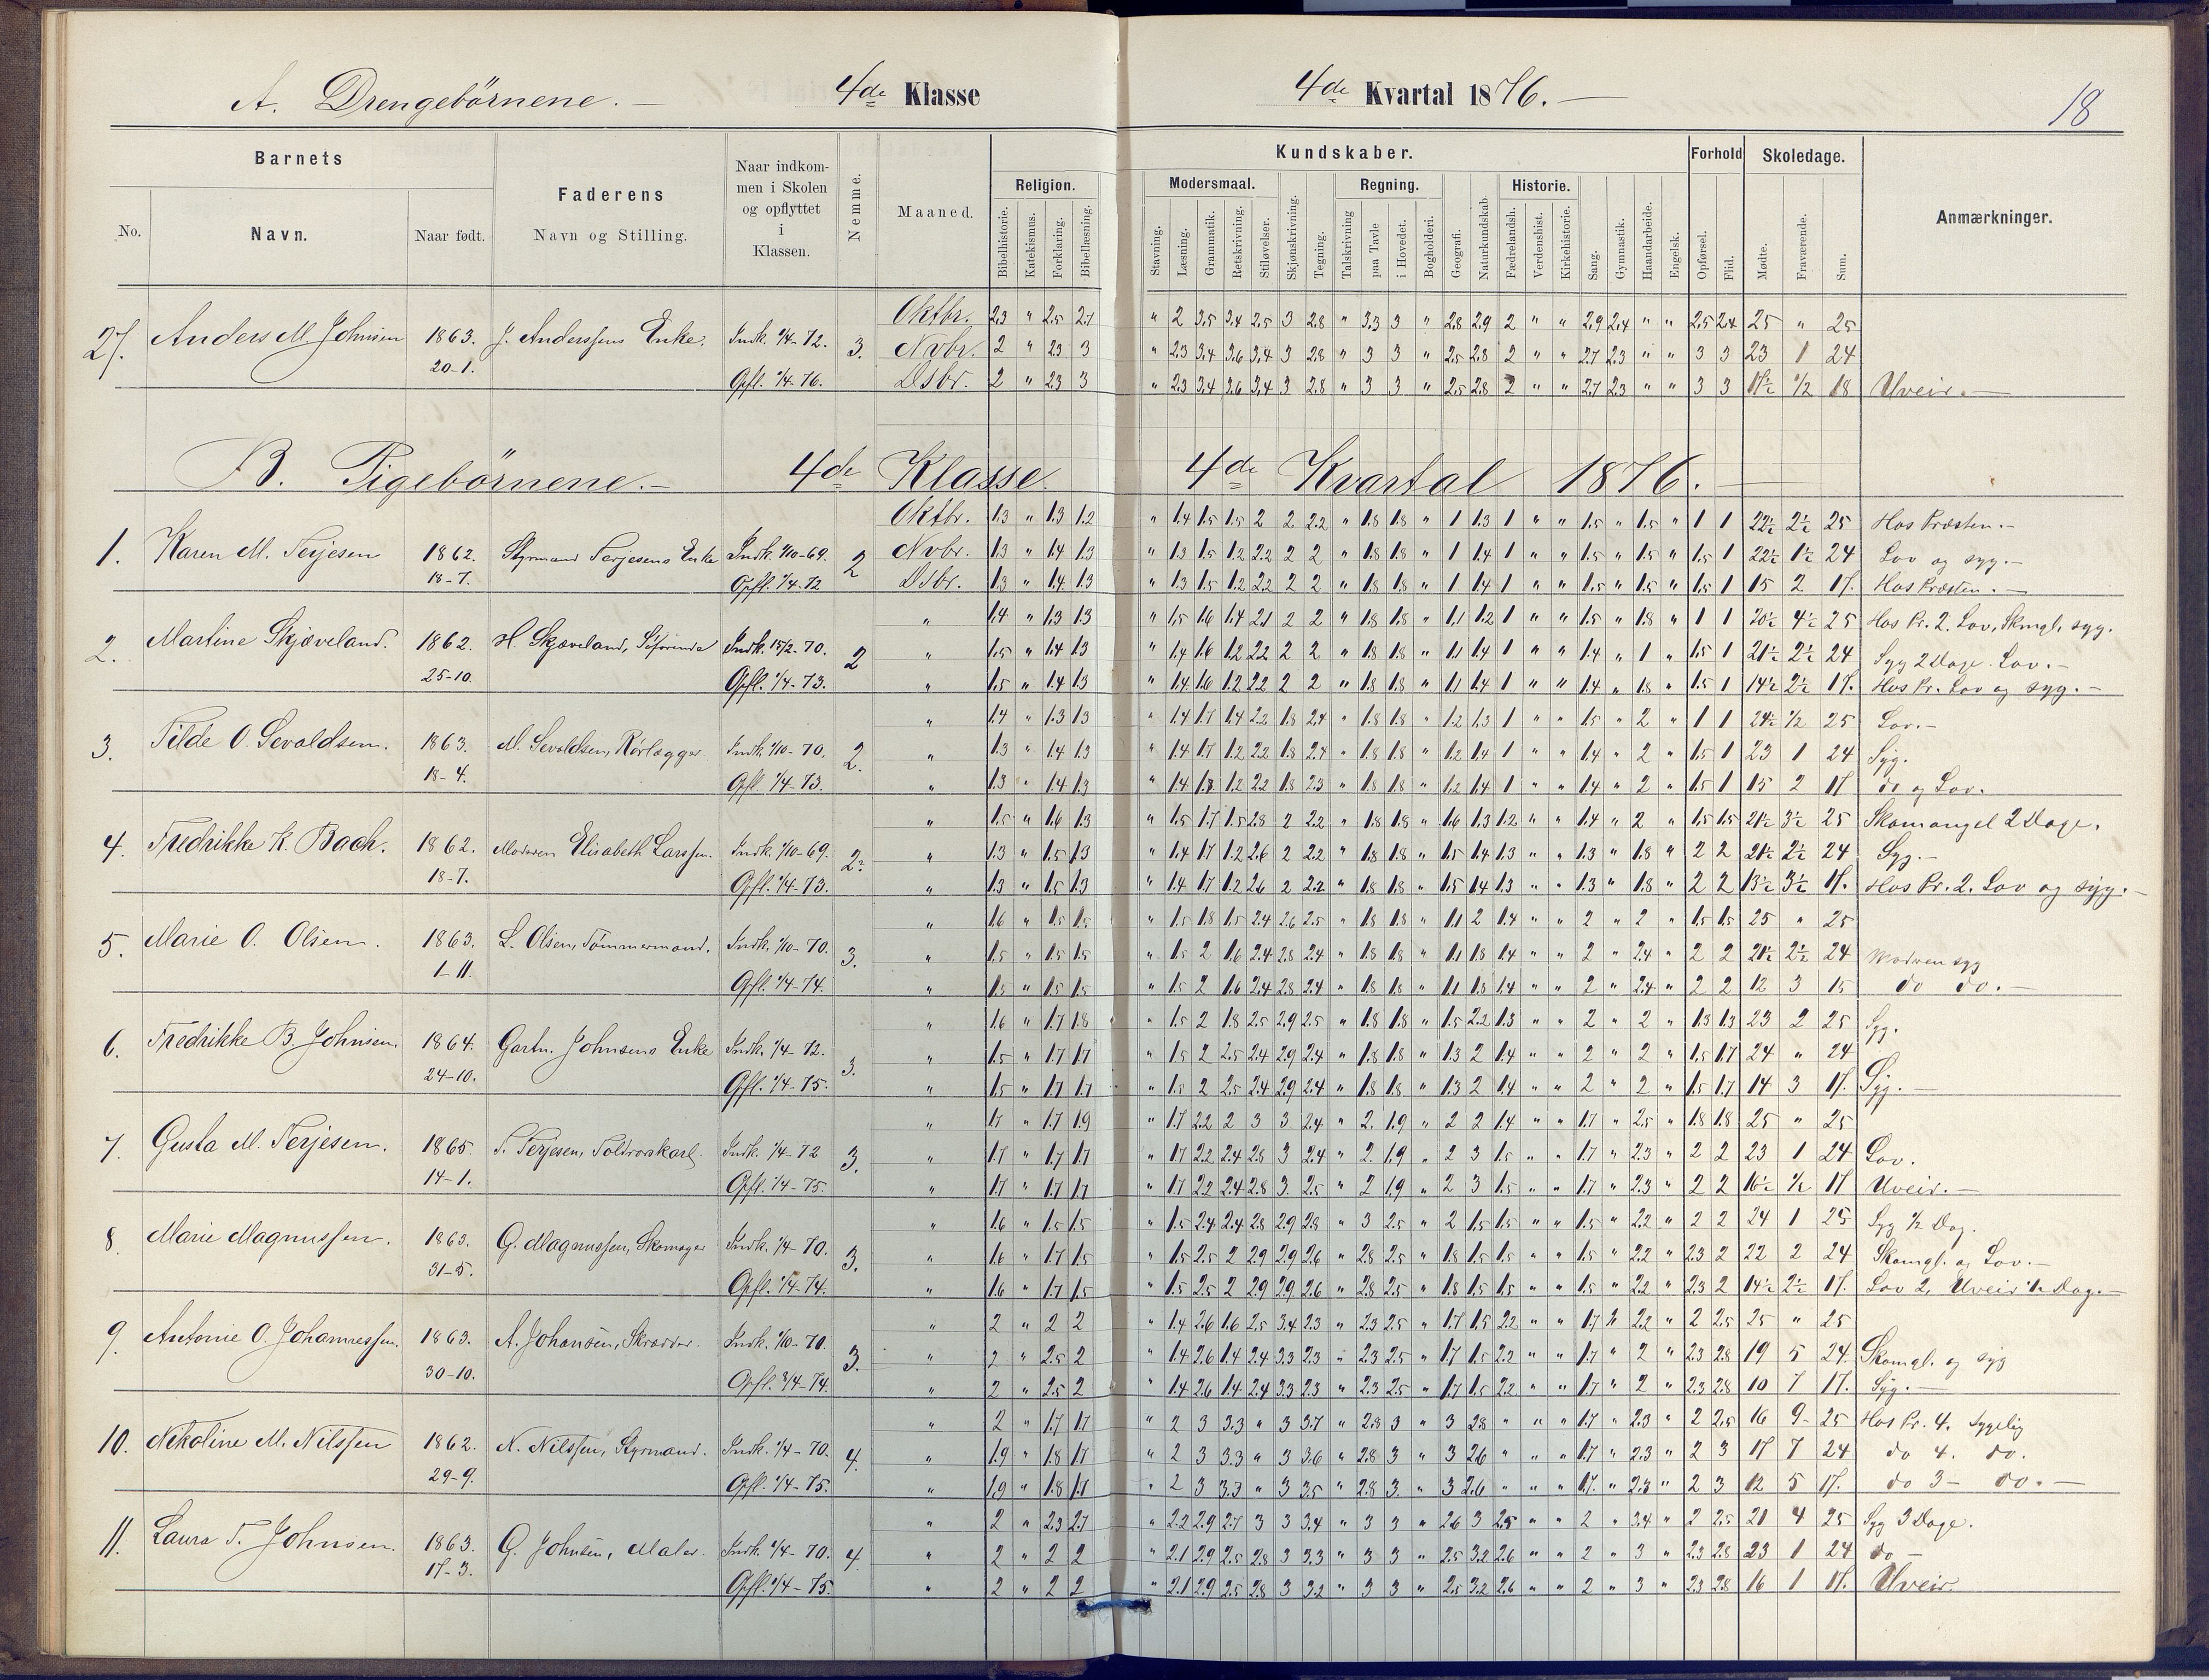 A. Drengebörnene. — 4de Klasse 4de Kvartal 1876. — 18
Barnets Faderens Naar indkommen i Skolen og opflyttet i Klassen. Nemme. Maaned. Kundskaber. Forhold Skoledage. Anmærkninger.
No. Navn. Naar født. Navn og Stilling. Religion. Modersmaal. Regning. Historie.
Bibelhistorie. Katekismus. Forklaring. Bibellæsning. Stavning. Læsning. Grammatik. Retskrivning. Stiløvelser. Skjønskrivning. Tegning. Talskrivning paa Tavle i Hovedet. Bogholderi. Geografi. Naturkundskab. Fædrelandsh. Verdenshist. Kirkehistorie. Sang. Gymnastik. Haandarbeide. Engelsk. Opførsel. Flid. Mødte. Fraværende. Sum.
27. Anders M. Johnsen 1863. J. Anderssens Enke. Indk. 1/4-72. 3.
20-1. Opfl. 1/4-76.
Oktbr. 2.3 " 2.5 2.7 " 2 3.5 3.4 2.5 3 2.8 " 3.3 3 " 2.8 2.9 2 " " 2.9 2.4 " " 2.5 2.4 25 " 25
Nvbr. 2 " 2.3 3 " 2.3 3.4 3.6 3.4 3 2.8 " 3 3 " 2.5 2.8 2 " " 2.7 2.3 " " 3 3 23 1 24
Dsbr. 2 " 2.3 3 " 2.3 3.4 3.6 3.4 3 2.8 " 3 3 " 2.5 2.8 2 " " 2.7 2.3 " " 3 3 17½ 1/2 18 Uveir. —
B. Pigebörnene. — 4de Klasse. 4de Kvartal 1876. —
1. Karen M. Terjesen 1862. Styrmand Terjesens Enke Indk. 1/10-69. 2
18-7. Opfl. 1/4-72
Oktbr. 1.3 " 1.3 1.2 " 1.4 1.5 1.5 2 2 2.2 " 1.8 1.8 " 1 1.3 1 " " 1.5 " 1.5 " 1 1 22½ 2½ 25 Hos Præsten. —
Nvbr. 1.3 " 1.4 1.3 " 1.3 1.5 1.2 2.2 2 2 " 1.8 1.8 " 1 1.4 1 " " 1.5 " 1.5 " 1.5 1 22½ 1½ 24 Lov og syg. —
Dsbr. 1.3 " 1.4 1.3 " 1.3 1.5 1.2 2.2 2 2 " 1.8 1.8 " 1 1.4 1 " " 1.5 " 1.5 " 1.5 1 15 2 17. Hos Præsten. —
2. Martine Skjæveland. 1862. H. Skjæveland, Indk. 15/2-70. 2
25-10. Opfl. 1/4-73.
" 1.4 " 1.3 1.3 " 1.5 1.6 1.4 2.1 2 2 " 1.8 1.8 " 1.1 1.2 1 " " 1.5 " 1.8 " 1 1 20½ 4½ 25 Hos Pr. 2. Lov, Skmgl, syg.
" 1.5 " 1.4 1.3 " 1.4 1.6 1.2 2.2 2 2 " 1.8 1.8 " 1.1 1.4 1 " " 1.4 " 1 " 1.5 1 21½ 2½ 24 Syg 2 Dage. Lov. —
" 1.5 " 1.4 1.3 " 1.4 1.6 1.2 2.2 2 2 " 1.8 1.8 " 1.1 1.4 1 " " 1.4 " 1.8 " 1.5 1 14½ 2½ 17. Hos Pr. Lov og syg. —
3. Tilde O. Sevaldsen. 1863. M. Sevaldsen, Rørlægger Indk. 1/10-70. 2.
18-4. Opfl. 1/4-73.
" 1.4 " 1.3 1.3 " 1.4 1.7 1.4 2.2 1.8 2.4 " 1.8 1.8 " 1.2 1.3 1 " " 1.5 " 2 " 1 1 24½ 1/2 25 Lov. —
" 1.3 " 1.4 1.3 " 1.4 1.7 1.2 2.2 1.8 2.4 " 1.8 1.8 " 1.2 1.4 1 " " 1.4 " 2 " 1.5 1 23 1 24 Syg.
" 1.3 " 1.4 1.3 " 1.4 1.8 1.2 2.2 1.8 2.3 " 1.8 1.8 " 1.2 1.4 1 " " 1.4 " 2 " 1.5 1 15 2 17 do og Lov.
4. Fredrikke K. Bach. 1862. Moderen Elisabeth Larssen. Indk. 1/10-69. 2.
18-7. Opfl. 1/4-73.
" 1.5 " 1.6 1.3 " 1.5 1.7 1.5 2.8 2 2.2 " 1.8 1.8 " 1.6 1.3 1.2 " " 1.4 " 2 " 1.5 1.5 21½ 3½ 25 Skomangel 2 Dage.
" 1.3 " 1.5 1.3 " 1.4 1.7 1.2 2.6 2 2.2 " 1.8 1.8 " 1.5 1.4 1.3 " " 1.3 " 1.8 " 2 2 21½ 2½ 24 Syg. —
" 1.3 " 1.5 1.3 " 1.4 1.7 1.2 2.6 2 2.2 " 1.8 1.8 " 1.5 1.4 1.3 " " 1.3 " 1.8 " 2 2 13½ 3½ 17. Hos Pr. 2. Lov og syg. —
5. Marie O. Olsen. 1863. L. Olsen, Tömmermand. Indk. 1/10-70. 3.
1-11. Opfl. 1/4-74.
" 1.6 " 1.5 1.5 " 1.5 1.8 1.5 2.4 2.6 2.5 " 1.8 1.8 " 1.1 2 1.4 " " 2 " 2 " 1.5 1.5 25 " 25
" 1.5 " 1.5 1.5 " 1.5 2 1.6 2.4 2.8 2.4 " 1.8 1.8 " 1.1 1.8 1.4 " " 2 " 2.4 " 2 2 21½ 2½ 24 Modren syg
" 1.5 " 1.5 1.5 " 1.5 2 1.6 2.4 2.8 2.4 " 1.8 1.8 " 1.1 1.8 1.4 " " 2 " 2.4 " 2 2 12 3 15 do do. —
6. Fredrikke B. Johnsen. 1864. Gartn. Johnsens Enke Indk. 1/4-72. 3.
24-10. Opfl. 1/4-75.
" 1.6 " 1.7 1.8 " 1.5 2 1.8 2.5 2.9 2.5 " 1.8 1.8 " 1.5 2.2 1.3 " " 2 " 2 " 1.3 1.3 23 2 25 Syg.
" 1.5 " 1.7 1.7 " 1.5 2 2.5 2.4 2.9 2.4 " 1.8 1.8 " 1.3 2 1.4 " " 2 " 2 " 1.5 1.7 24 " 24
" 1.5 " 1.7 1.7 " 1.5 2 2.5 2.4 2.9 2.4 " 1.8 1.8 " 1.3 2 1.4 " " 2 " 2 " 1.5 1.7 14 3 17. Syg. —
7. Gusta M. Terjesen. 1865. T. Terjesen, Toldrorskarl. Indk. 1/4-72 3.
14-1. Opfl. 1/4-75.
" 1.7 " 1.7 1.9 " 1.7 2.2 2 3 3 2.4 " 2. 1.9 " 2 2 1.4 " " 1.7 " 2.5 " 1.8 1.8 25 " 25
" 1.7 " 1.7 1.7 " 1.7 2.2 2.4 2.8 3 2.4 " 2. 1.9 " 2 3 1.5 " " 1.7 " 2.3 " 2 2 23 1 24 Lov.
" 1.7 " 1.7 1.7 " 1.7 2.2 2.4 2.8 3. 2.5 " 2 1.9 " 2 3 1.5 " " 1.7 " 2.3 " 2 2 16½ 1/2 17 Uveir. —
8. Marie Magnussen. 1863. G. Magnussen, Skomager Indk. 1/4-70. 3.
31-5. Opfl. 1/4-74.
" 1.6 " 1.5 1.5 " 1.5 2.4 2.4 2.8 2.9 2.8 " 3 2.5 " 2 1.5 1.5 " " 1.5 " 2.2 " 2 2 24 1 25 Syg 1/2 Dag.
" 1.6 " 1.7 1.5 " 1.5 2.5 2 2.9 2.9 2.6 " 2.8 2.5 " 1.8 1.5 1.5 " " 1.5 " 2.2 " 2.3 2 22 2 24 Skomgl. og Lov. —
" 1.6 " 1.7 1.5 " 1.5 2.5 2 2.9 2.9 2.6 " 2.8 2.5 " 1.8 1.5 1.5 " " 1.5 " 2.2 " 2.3 2 14½ 2½ 17. Lov 2, Uveir 1/2 Dag. —
9. Antonie O. Johannessen. 1863. A. Johansen, Skrædder. Indk. 1/10-70. 3.
30-10. Opfl. 3/4-74.
" 2 " 2 2 " 1.4 2.6 1.6 2.5 3.4 2.3 " 2.3 2.5 " 1.7 1.5 2.2 " " 1.7 " 2.2 " 2 2.5 25 " 25
" 2 " 2.5 2 " 1.4 2.6 1.4 2.4 3.3 2.3 " 2.3 2.5 " 1.7 1.5 2.2 " " 1.7 " 2 " 2.3 2.8 19 5 24. Skomgl. og syg
" 2 " 2.5 2 " 1.4 2.6 1.4 2.4 3.3 2.3 " 2.3 2.5 " 1.7 1.5 2.2 " " 1.7 " 2 " 2.3 2.8 10 7 17. Syg. —
10. Nikoline M. Nilssen 1862. N. Nilssen, Styrmand. Indk. 1/4-70. 4.
29-9. Opfl. 1/4-75.
" 2 " 1.7 1.7 " 2 3 3.3 " 3 3.7 " 2.8 3 " 3 2.8 " " " 1.7 " 2.3 " 2 2.5 16 9- 25 Hos Pr. 4. Sygelig
" 1.9 " 1.8 1.7 " 2 3 3.3 " 3 3.6 " 2.8 3 " 3 2.6 " " " 1.7 " 2.3 " 2 3 17 7 24 do 4. do.
" 1.9 " 1.8 1.7 " 2 3 3.3 " 3 3.5 " 2.8 3. " 3 2.6 " " " 1.7. " 2.3 " 2 3 12 5 17. do 3- do. —
11. Laura T. Johnsen. 1863. G. Johnsen, Maler. Indk. 1/4-70. 4.
17-3. Opfl. 1/4-75.
" 2 " 2.3 2.7 " 2.2 2.9 2.7 3 3 3.4 " 3 3 " 2.6 3 2.5 " " 2 " 3.4 " 2 2.5 21 4 25 Syg 3 Dage.
" 2 " 2 2 " 2.1 2.9 2.5 2.8 3 3.3 " 3 3 " 2.5 3.2 2.6 " " 2 " 3 " 2.3 2.8 23 1 24 do —
" 2 " 2 2 " 2.1 2.9 2.5 2.8 3 3.2 " 3 3 " 2.5 3.2 2.6 " " 2 " 3 " 2.3 2.8 16 1 17. Uveir.